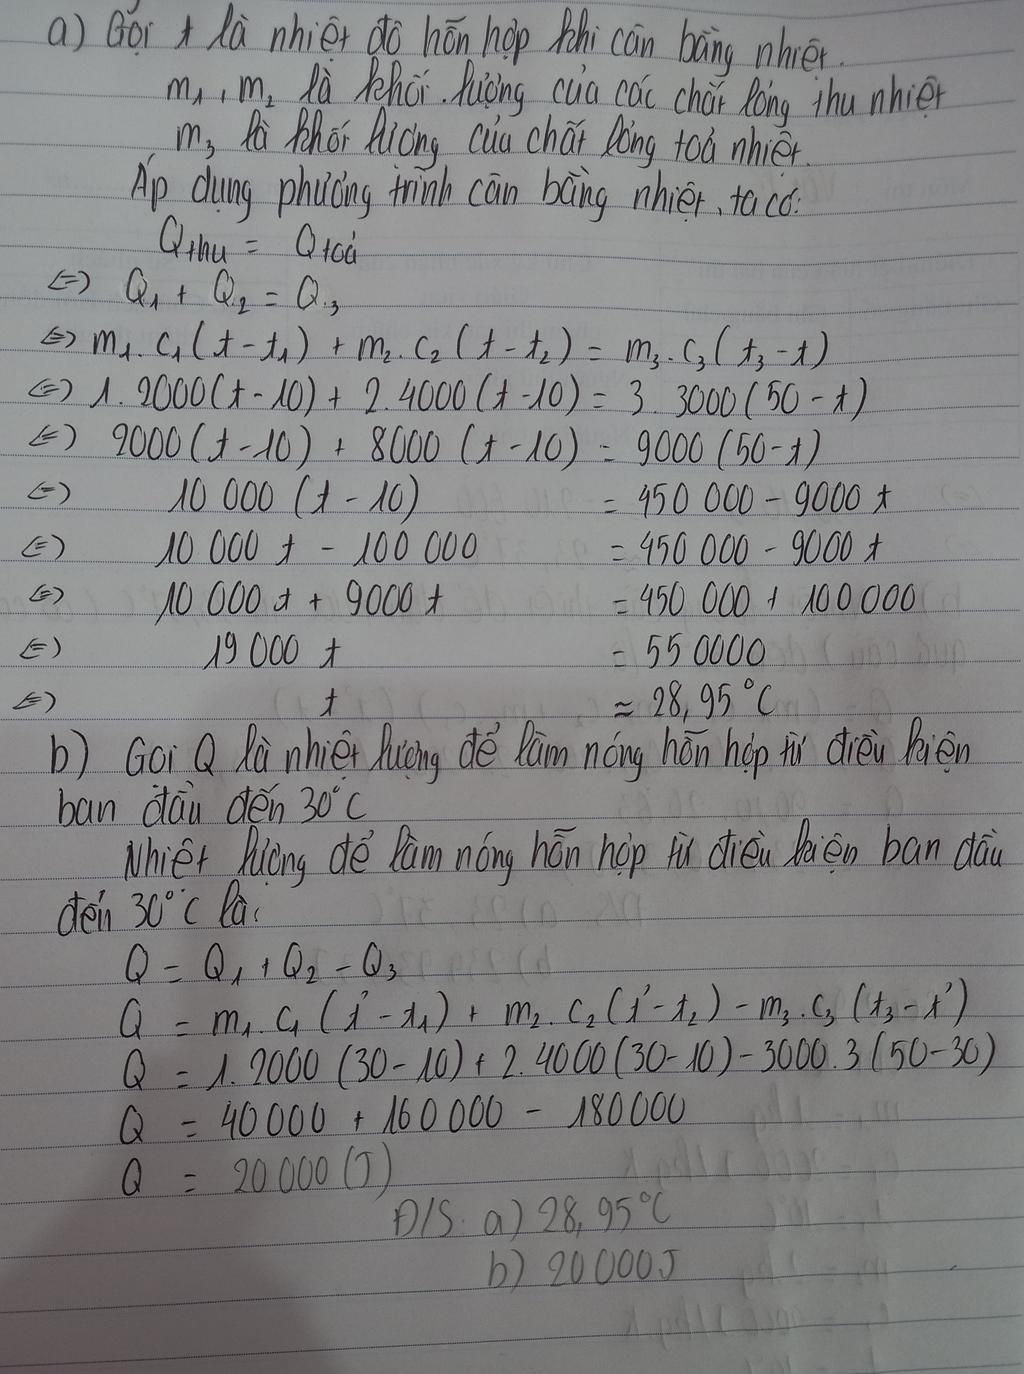 a) Gọi t là nhiệt độ hỗn hợp khi cân bằng nhiệt.
m₁, m₂ là khối lượng của các chất lỏng thu nhiệt
m₃ là khối lượng của chất lỏng toả nhiệt.
Áp dụng phương trình cân bằng nhiệt, ta có:
Qthu = Qtoả
⇔ Q₁ + Q₂ = Q₃
⇔ m₁.c₁(t-t₁) + m₂.c₂(t-t₂) = m₃.c₃(t₃-t)
⇔ 1.2000(t-10) + 2.4000(t-10) = 3.3000(50-t)
⇔ 2000(t-10) + 8000(t-10) = 9000(50-t)
⇔ 10 000 (t-10) = 450 000 - 9000 t
⇔ 10 000 t - 100 000 = 450 000 - 9000 t
⇔ 10 000 t + 9000 t = 450 000 + 100 000
⇔ 19 000 t = 55 0000
⇔ t ≈ 28,95°C
b) Gọi Q là nhiệt lượng để làm nóng hỗn hợp từ điều kiện
ban đầu đến 30°C
Nhiệt lượng để làm nóng hỗn hợp từ điều kiện ban đầu
đến 30°C là:
Q = Q₁ + Q₂ - Q₃
Q = m₁.c₁(t'-t₁) + m₂.c₂(t'-t₂) - m₃.c₃(t₃-t')
Q = 1.2000(30-10) + 2.4000(30-10) - 3000.3(50-30)
Q = 40 000 + 160 000 - 180000
Q = 20 000 (J)
Đ/S: a) 28,95°C
b) 20 000J